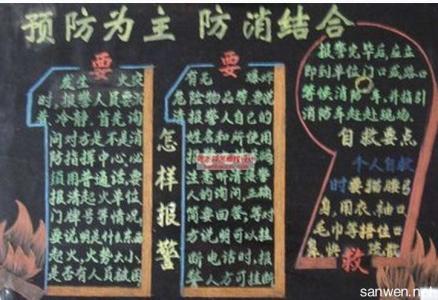 预防为主 防消结合
要
发生 火灾
时,报警人员要沉
着、冷静。首先询
问对方是不是消
防指挥中心,必
须用普通话要
报清起火单位
门牌号等情况
要说明是什么东西
起火,火势大小,
是否有人员被困
怎样报警
要
有无 爆炸
危险物品等,要说
报警人自己的
姓名和所使用
人的询问,正确
简要回答;等对
方说明可以挂
断电话时,报
警人方可挂断
报警完毕后,应立
即到单位门口或路口
等候消防车,并指引
消防车赶赴现场。
自救要点
个人自救
时要猫腰弓
身,用衣、袖口
毛巾等捂住口
鼻快 疏散
救
sanwen.net